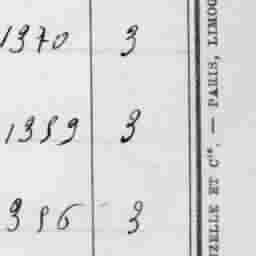 1970 3
1959 3
956 3
UZELLE ET Cie. — PARIS, LIMOG